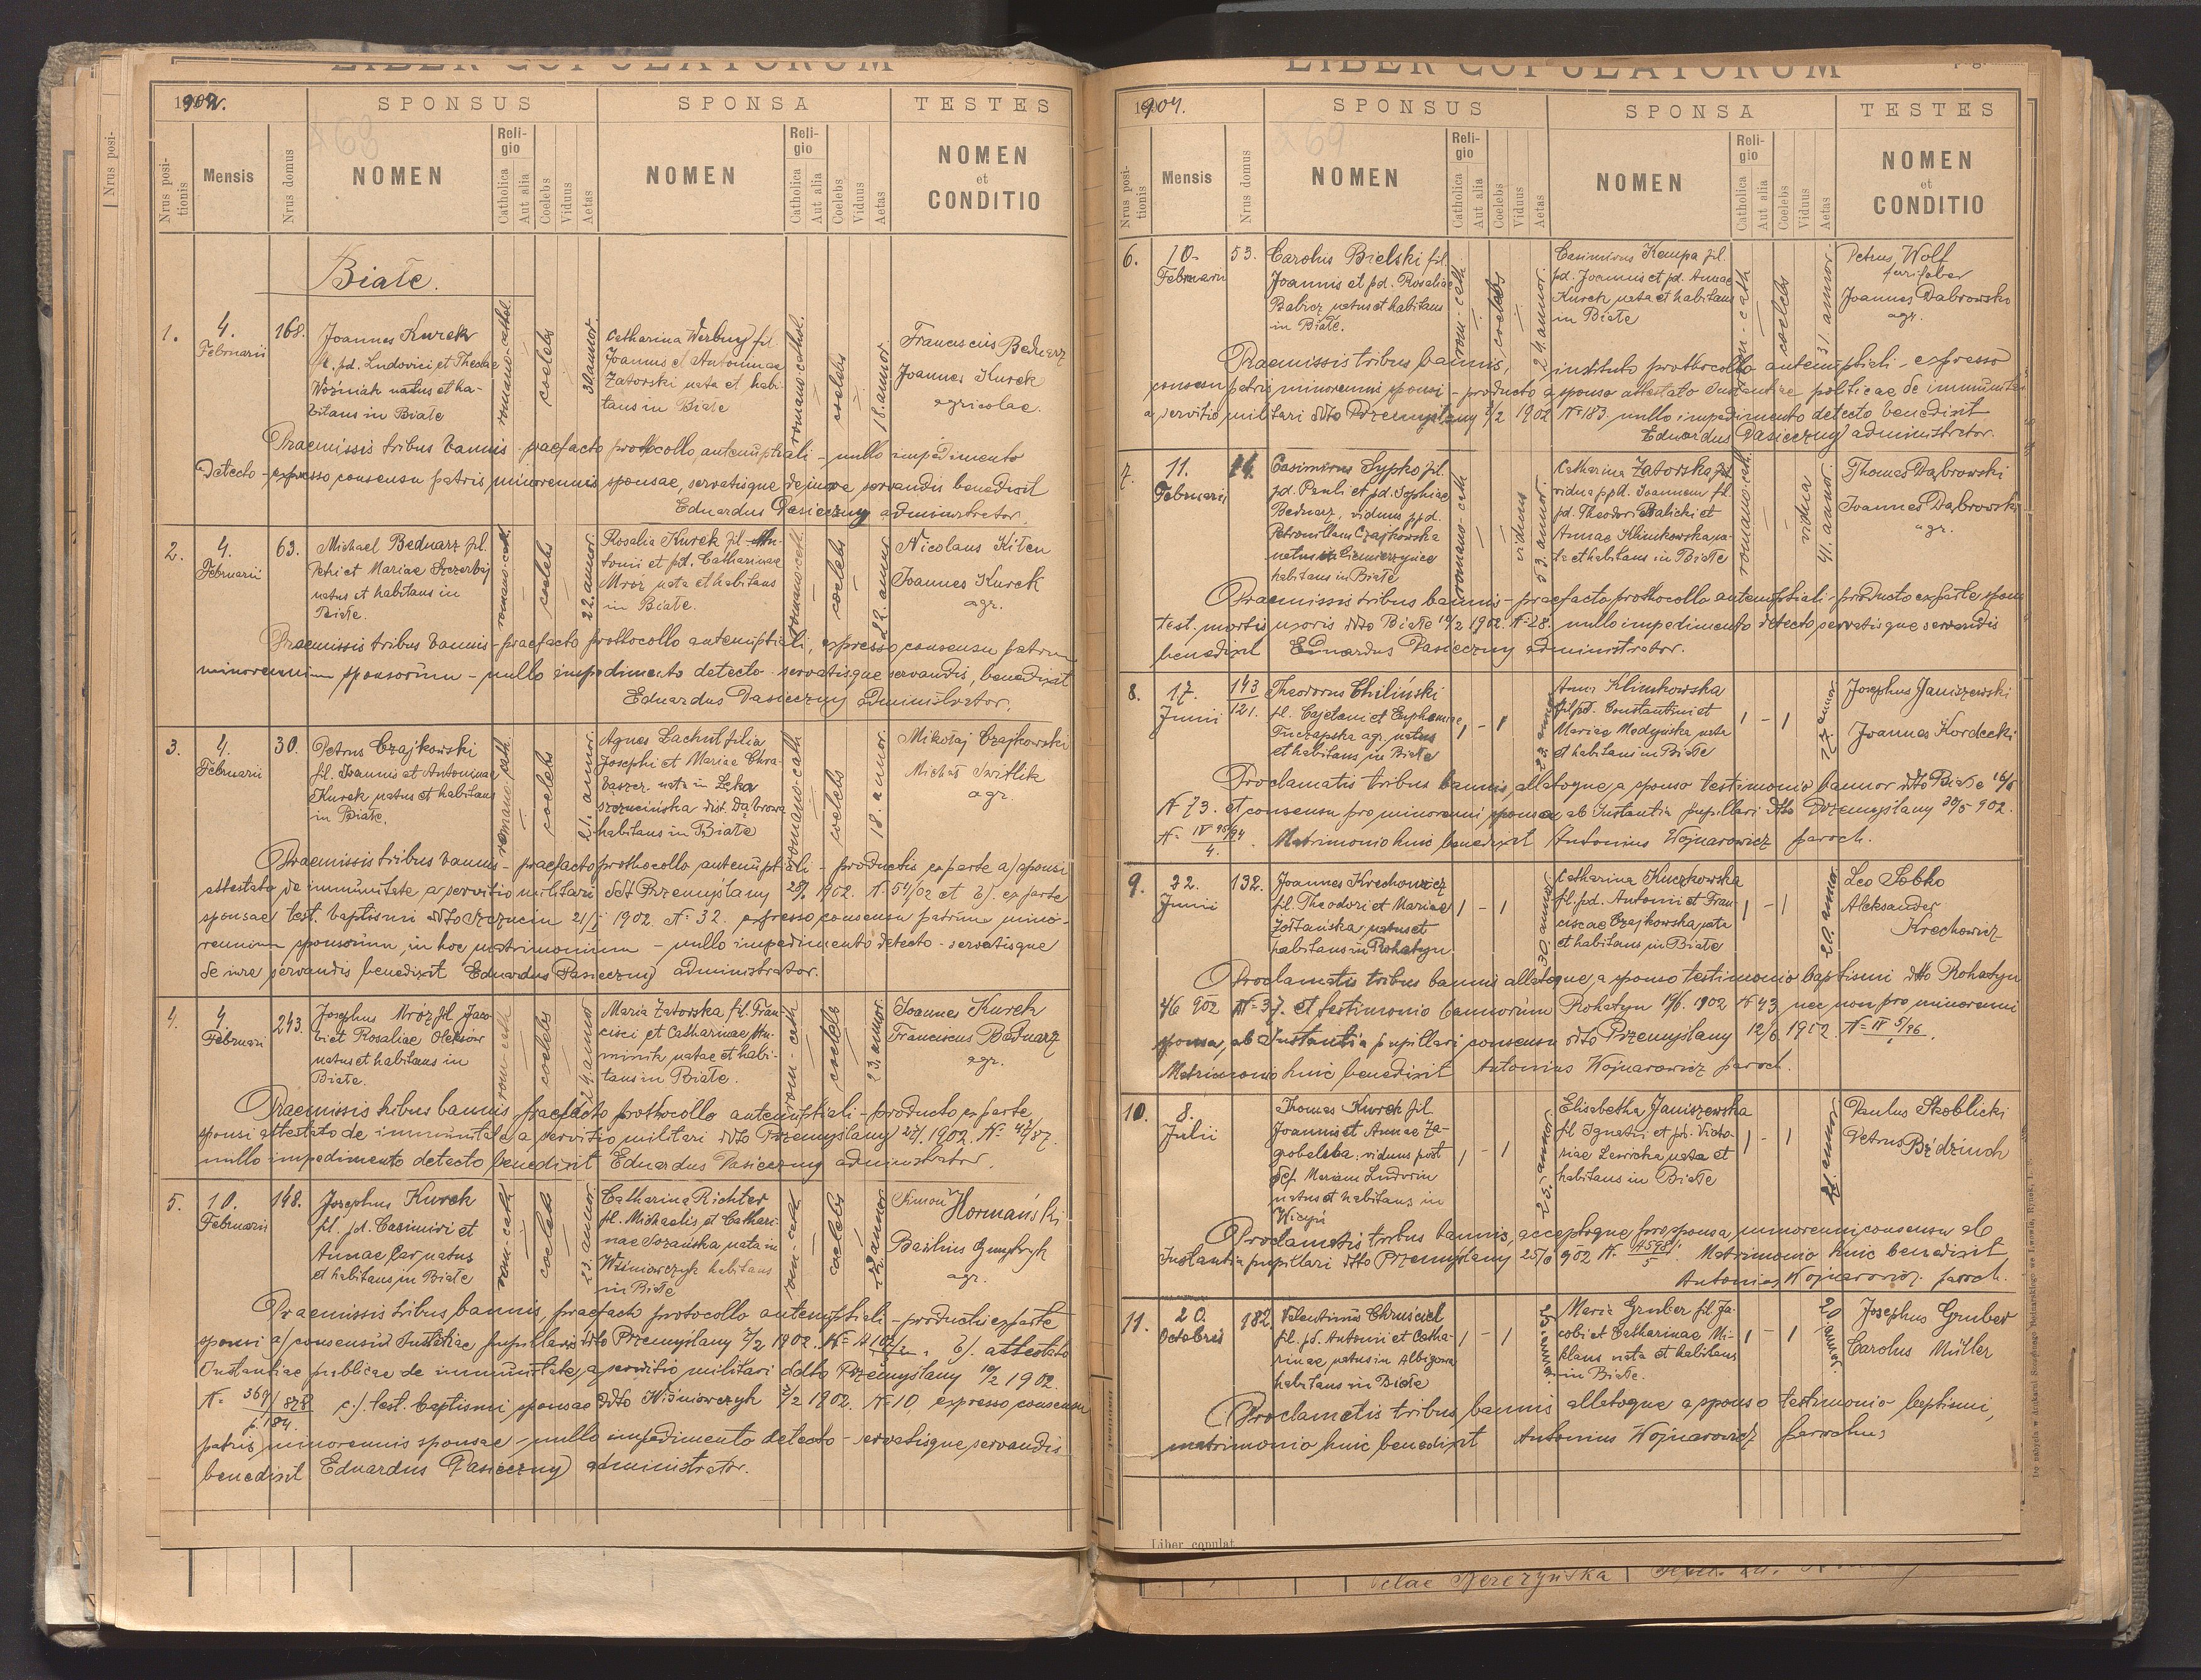 LIBER COPULATORUM
1902.
SPONSUS
SPONSA
TESTES
Nrus positionis
Mensis
Nrus domus
NOMEN
Religio
Catholica
Aut alia
Coelebs
Viduus
Aetas
NOMEN
Religio
Catholica
Aut alia
Coelebs
Viduus
Aetas
NOMEN
et
CONDITIO
Białe.
1.
4.
Februarii
168.
Joannes Kurek
f. pd. Ludovici et Theclae
Woźniak natus et ha-
bitans in Białe
romano-cathol.
coelebs
30 annor.
Catharina Werbny fil.
Joannis et Antoninae
Zatorski nata et habi-
tans in Białe
romano-cathol.
coelebs
18. annor.
Franciscus Bednarz
Joannes Kurek
agricolae.
Praemissis tribus bannis - praefacto prothocollo antenuptiali - nullo impedimento
detecto - expresso consensu patris minorennis sponsae, servatisque de jure servandis benedixit
Eduardus Pasieczny administrator.
2.
4.
Februarii
63.
Michael Bednarz fil.
Petri et Mariae Szczerbij
natus et habitans in
Białe.
romano-cath.
coelebs
22. annor.
Rosalia Kurek fil. An-
tonii et pd. Catharinae
Mroz nata et habitans
in Białe.
romano-cath.
coelebs
22. annor
Nicolaus Kiten
Joannes Kurek
agr.
Praemissis tribus bannis - praefacto prothocollo antenuptiali, expresso consensu patrum
minorennium sponsorum - nullo impedimento detecto - servatisque servandis, benedixit
Eduardus Pasieczny administrator.
3.
4.
Februarii
30.
Petrus Czajkowski
fil. Joannis et Antoninae
Kurek natus et habitans
in Białe.
romano-cath.
coelebs
21. annor.
Agnes Lachut filia
Josephi et Mariae Chra-
bąszcz nata in Łęka
szczucińska dist. Dąbrowa
habitans in Białe
romano-cath
coelebs
18. annor.
Mikołaj Czajkowski
Michał Switlik
agr.
Praemissis tribus bannis - praefacto prothocollo antenuptiali - productis ex parte a) sponsi
attestato de immunitate a servitio militari ddt Przemyślany 28/1 1902. N. 51/02 et b). ex parte
sponsae test. baptismi ddto Szczucin 21/I 1902 N. 32. expresso consensu patrum mino-
rennium sponsorum, in hoc matrimonium - nullo impedimento detecto - servatisque
de iure servandis benedixit Eduardus Pasieczny administrator.
4.
4
Februarii
243.
Josephus Mróz fil Jaco-
bi et Rosaliae Oleksiów
natus et habitans in
Białe.
rom-cath
coelebs
24. annor
Maria Zatorska fil. Fran-
cisci et Catharinae Hu-
miniak natae et habi-
tans in Białe.
rom-cath
coelebs
23. annor.
Joannes Kurek
Franciscus Bednarz
agr.
Praemissis tribus bannis, praefacto prothocollo antenuptiali - producto ex parte
sponsi attestato de immunitate a servitio militari ddto Przemyślany 27/1. 1902. N. 47/87.
nullo impedimento detecto benedixit Eduardus Pasieczny administrator.
5.
10.
Februarii
148.
Josephus Kurek
fil. pd. Casimiri et
Annae Car natus
et habitans in Białe
rom-cath
coelebs
23. annor.
Catharina Richter
fil. Michaelis et Cathari-
nae Sozańska nata in
Wiśniowczyk habitans
in Białe
rom-cath
coelebs
annor
Simon Hormański
Basilius
agr.
Praemissis tribus bannis, praefacto protocollo antenuptiali - productis ex parte
sponsi a) consensu Instantiae pupillaris ddto Przemyślany 5/2 1902. N= b). attestato
Instantiae publicae de immunitate a servitio militari ddto Przemyślany 10/2 1902.
N= 369/828 p. 184 c.). test. baptismi sponsae ddto Wiśniowczyk 7/2 1902. N=10, expresso consensu
patris minorennis sponsae - nullo impedimento detecto - servatisque servandis
benedixit Eduardus Pasieczny administrator.
LIBER COPULATORUM
Pag.
1904.
SPONSUS
SPONSA
TESTES
Nrus positionis
Mensis
Nrus domus
NOMEN
Religio
Catholica
Aut alia
Coelebs
Viduus
Aetas
NOMEN
Religio
Catholica
Aut alia
Coelebs
Viduus
Aetas
NOMEN
et
CONDITIO
6.
10.
Februarii
53.
Carolus Bielski fil.
Joannis et pd. Rosaliae
Babicz, natus et habitans
in Białe.
rom-cath.
coelebs
24. annor.
Casimira Kempa fil.
pd. Joannis et pd. Annae
Kurek nata et habitans
in Białe
rom-cath
coelebs
31. annor.
Petrus Wolf
Joannes Dąbrowski
agr.
Praemissis tribus bannis, instituto prothocollo antenuptiali - expresso
consensu patris minorennis sponsi - producto a sponso attestato Instantiae politicae de immunitate
a servitio militari ddto Przemyślany 8/2 1902 N=183. nullo impedimento detecto benedixit
Eduardus Pasieczny administrator.
7.
11.
Februarii
Casimirus Sypko fil.
pd. Pauli et pd. Sophiae
Bednarz, viduus ppd.
Petronillam Czajkowska
natus in Ciemierzynce
habitans in Białe
romano-cath
viduus
53. annor.
Catharina Zatorska fil.
vidua ppd. Joannem fil.
pd. Theodori Balicki et
Annae Klimkowska na-
ta et habitans in Białe
romano-cath.
vidua
41. annor.
Thomas Dąbrowski
Joannes Dąbrowski
agr.
Praemissis tribus bannis - praefacto prothocollo antenuptiali - producto ex parte sponsi
test. mortis uxoris ddto Białe 10/2 1902. N=28. nullo impedimento detecto servatisque servandis
benedixit Eduardus Pasieczny administrator.
8.
17.
Junii
143
121.
Theodorus Chiliński
fil. Cajetani et Euphemiae
Tuczapska agr. natus
et habitans in Białe
1 - 1
annor
Anna Klimkowska
fil. pd. Constantini et
Mariae Medyńska nata
et habitans in Białe
1 - 1
annor
Josephus Janiszewski
Joannes Kordecki
Proclamatis tribus bannis, allatoque a sponso testimonio bannor. ddto Białe 16/6
N 73. et consensu pro minorenni sponsa ab Instantia pupillari ddto Przemyślany 30/5 902.
N= Matrimonio huic benedixit Antonius Wojnarowicz paroch.
9.
22.
Junii
132.
Joannes Krechowicz
fil. Theodori et Mariae
Żółtańska, natus et
habitans in Rohatyn
1 - 1
30. annor.
Catharina Kuczkowska
fil. pd. Antonii et Fran-
ciscae Czajkowska nata
et habitans in Białe
1 - 1
20. annor
Leo Sobko
Aleksander
Krechowicz
Proclamatis tribus bannis allatoque, a sponso testimonio baptismi ddto Rohatyn
4/6 902 N=37. et testimonio bannorum Rohatyn 19/6. 1902 N 43, nec non pro minorenni
sponsa, ab Instantia pupillari consensu ddto Przemyślany 12/6 1902. N=IV 5/96.
Matrimonio huic benedixit Antonius Wojnarowicz paroch.
10.
8.
Julii
Thomas Kurek fil
Joannis et Annae Za-
gobelska, viduus post
def. Mariam Ludwin
natus et habitans in
Wicyń
1 - 1
25. annor
Elisabetha Janiszewska
fil Ignatii et pd. Victo-
riae Lewicka nata et
habitans in Białe
1 - 1
21. annor
Paulus Skoblicki
Petrus Bżdziuch
Proclamatis tribus bannis, acceptoque pro sponsa minorenni consensu ab
Instantia pupillari ddto Przemyślany 25/6 902 N. 4598/5. Matrimonio huic benedixit
Antonius Wojnarowicz. paroch.
11.
20.
Octobris
182.
Valentinus Chruściel
fil. pd. Antonii et Catha-
rinae natus in Albigowa
habitans in Białe
1 - 1
annor.
Maria Gruber fil. Ja-
cobi et Catharinae Mi-
klaus nata et habitans
in Białe.
1 - 1
20 annor.
Josephus Gruber
Carolus Müller
Proclamatis tribus bannis allatoque a sponso testimonio baptismi,
matrimonio huic benedixit Antonius Wojnarowicz parochus
Liber copulat